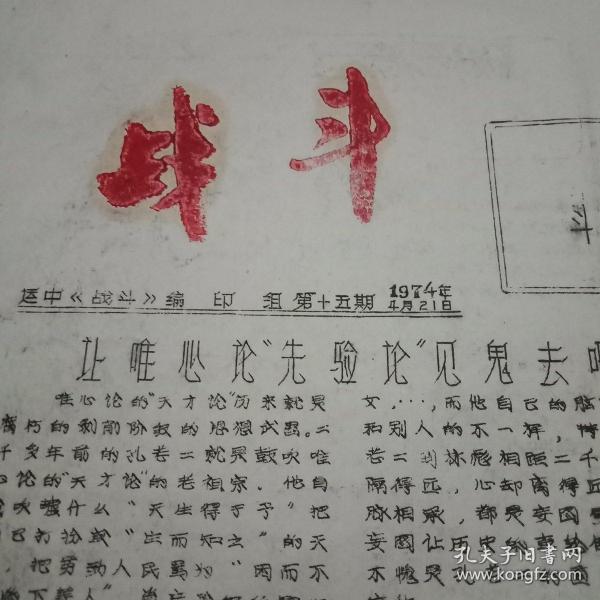 战斗
运中《战斗》编印组 第十五期 1974年4月21日
让唯心论"先验论"见鬼去
唯心论的"天才论"历来就是
腐朽的剥削阶级的思想武器。二
千多年前的孔老二就是鼓吹唯
心论的"天才论"的老祖宗。他自
吹嘘什么"天生得于予"把
己打扮成"生而知之"的天
,把劳动人民骂为"困而不
文,…,而他自己的脑
和别人的不一样,
老二到林彪相距二千
隔得
,心却离得
脉相承,都是妄图
妄图让历史的车轮倒
不愧是
孔夫子旧书网
www.kongfz.com